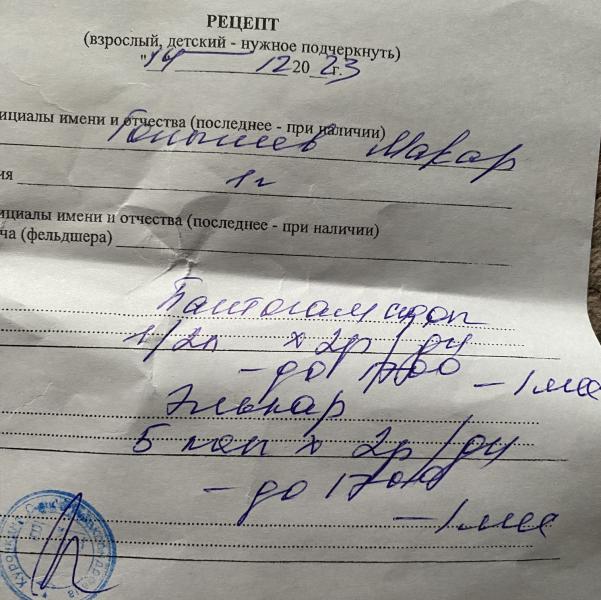 РЕЦЕПТ
(взрослый, детский - нужное подчеркнуть)
"14 12 20 23 г.
ициалы имени и отчества (последнее - при наличии)
Макар
ия 1г
ициалы имени и отчества (последнее - при наличии)
ча (фельдшера)
Пантогам сироп
1/2л х 2р/ду
- до 17 00 - 1 мес
Элькар
5 кап х 2р/ду
- до 17 00
- 1 мес